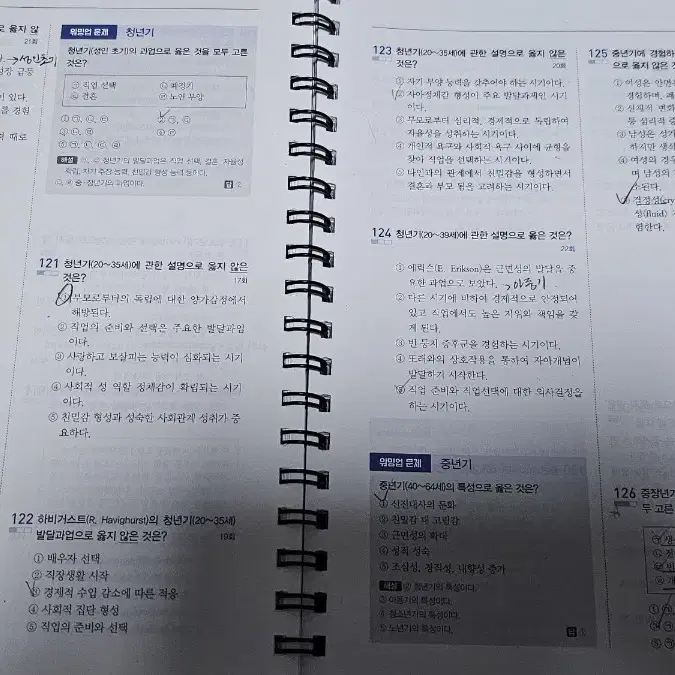 로 옳지 않
21회
성장 급등
가 있다.
를 경험
워밍업 문제 청년기
청년기(성인 초기)의 과업으로 옳은 것을 모두 고른
것은?
㉠ 직업 선택 ㉡ 폐경기
㉢ 결혼 ㉣ 노인 부양
해설
답 ②
121 청년기(20~35세)에 관한 설명으로 옳지 않은
것은? 17회
① 부모로부터의 독립에 대한 양가감정에서
해방된다.
② 직업의 준비와 선택은 주요한 발달과업
이다.
③ 사랑하고 보살피는 능력이 심화되는 시기
이다.
④ 사회적 성 역할 정체감이 확립되는 시기
이다.
⑤ 친밀감 형성과 성숙한 사회관계 성취가 중
요하다.
122 하비거스트(R. Havighurst)의 청년기(20~35세)
발달과업으로 옳지 않은 것은? 19회
① 배우자 선택
② 직장생활 시작
③ 경제적 수입 감소에 따른 적응
④ 사회적 집단 형성
⑤ 직업의 준비와 선택
123 청년기(20~35세)에 관한 설명으로 옳지 않은
것은? 20회
① 자기 부양 능력을 갖추어야 하는 시기이다.
② 자아정체감 형성이 주요 발달과제인 시기
이다.
③ 부모로부터 심리적, 경제적으로 독립하여
자율성을 성취하는 시기이다.
④ 개인적 욕구와 사회적 욕구 사이에 균형을
찾아 직업을 선택하는 시기이다.
⑤ 타인과의 관계에서 친밀감을 형성하면서
결혼과 부모 됨을 고려하는 시기이다.
124 청년기(20~39세)에 관한 설명으로 옳은 것은?
22회
① 에릭슨(E. Erikson)은 근면성의 발달을 중
요한 과업으로 보았다. →아동기
② 다른 시기에 비하여 경제적으로 안정되어
있고 직업에서도 높은 지위와 책임을 갖
게 된다.
③ 빈 둥지 증후군을 경험하는 시기이다.
④ 또래와의 상호작용을 통하여 자아개념이
발달하기 시작한다.
⑤ 직업 준비와 직업선택에 대한 의사결정을
하는 시기이다.
워밍업 문제 중년기
중년기(40~64세)의 특성으로 옳은 것은?
① 신진대사의 둔화
② 친밀감 대 고립감
③ 근면성의 확대
④ 성적 성숙
⑤ 조심성, 경직성, 내향성 증가
해설 ② 청년기의 특성이다.
③ 아동기의 특성이다.
④ 청소년기의 특성이다.
⑤ 노년기의 특성이다.
답
125 중년기에 경험하
으로 옳지 않은 것
① 여성은 안면
② 신체적 변화
③ 남성은 성기
하지만 생식
④ 여성의 경우
며 남성의
험한다.
126 중장년기
두 고른